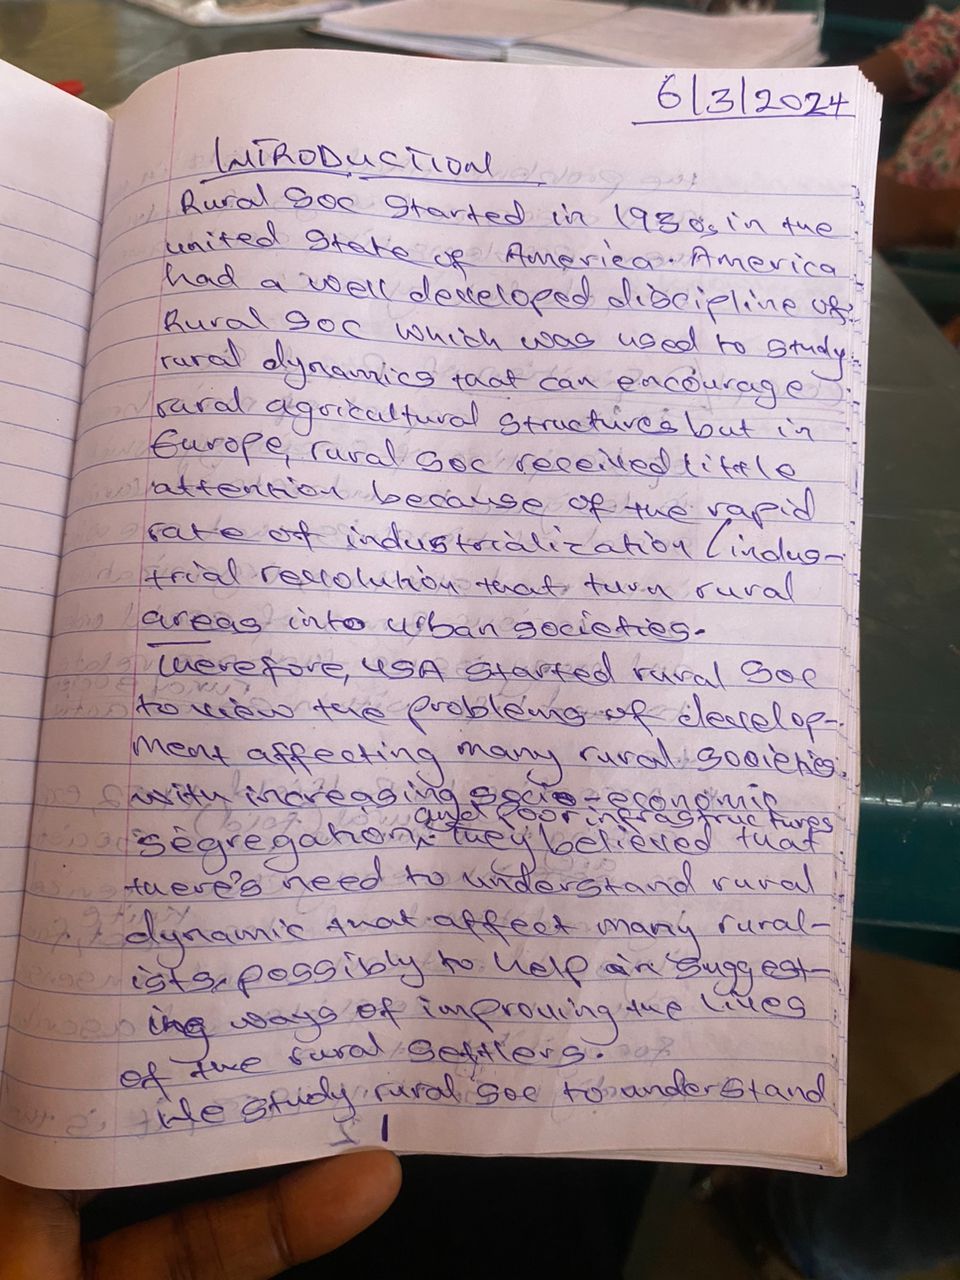 6/3/2024
INTRODUCTION
Rural Soc started in 1930s in the
united State of America. America
had a well developed discipline of
Rural soc which was used to study
rural dynamics that can encourage
rural agricultural structures but in
Europe, rural soc received little
attention because of the rapid
rate of industrialization (indus-
trial revolution that turn rural
areas into urban societies.
Therefore, USA started rural soc
to view the problems of develop-
ment affecting many rural societies
with increasing socio-economic
and poor infrastructures
segregation. They believed that
there's need to understand rural
dynamic that affect many rural-
ists, possibly to help in suggest-
ing ways of improving the lives
of the rural settlers.
We study rural soc to understand
1